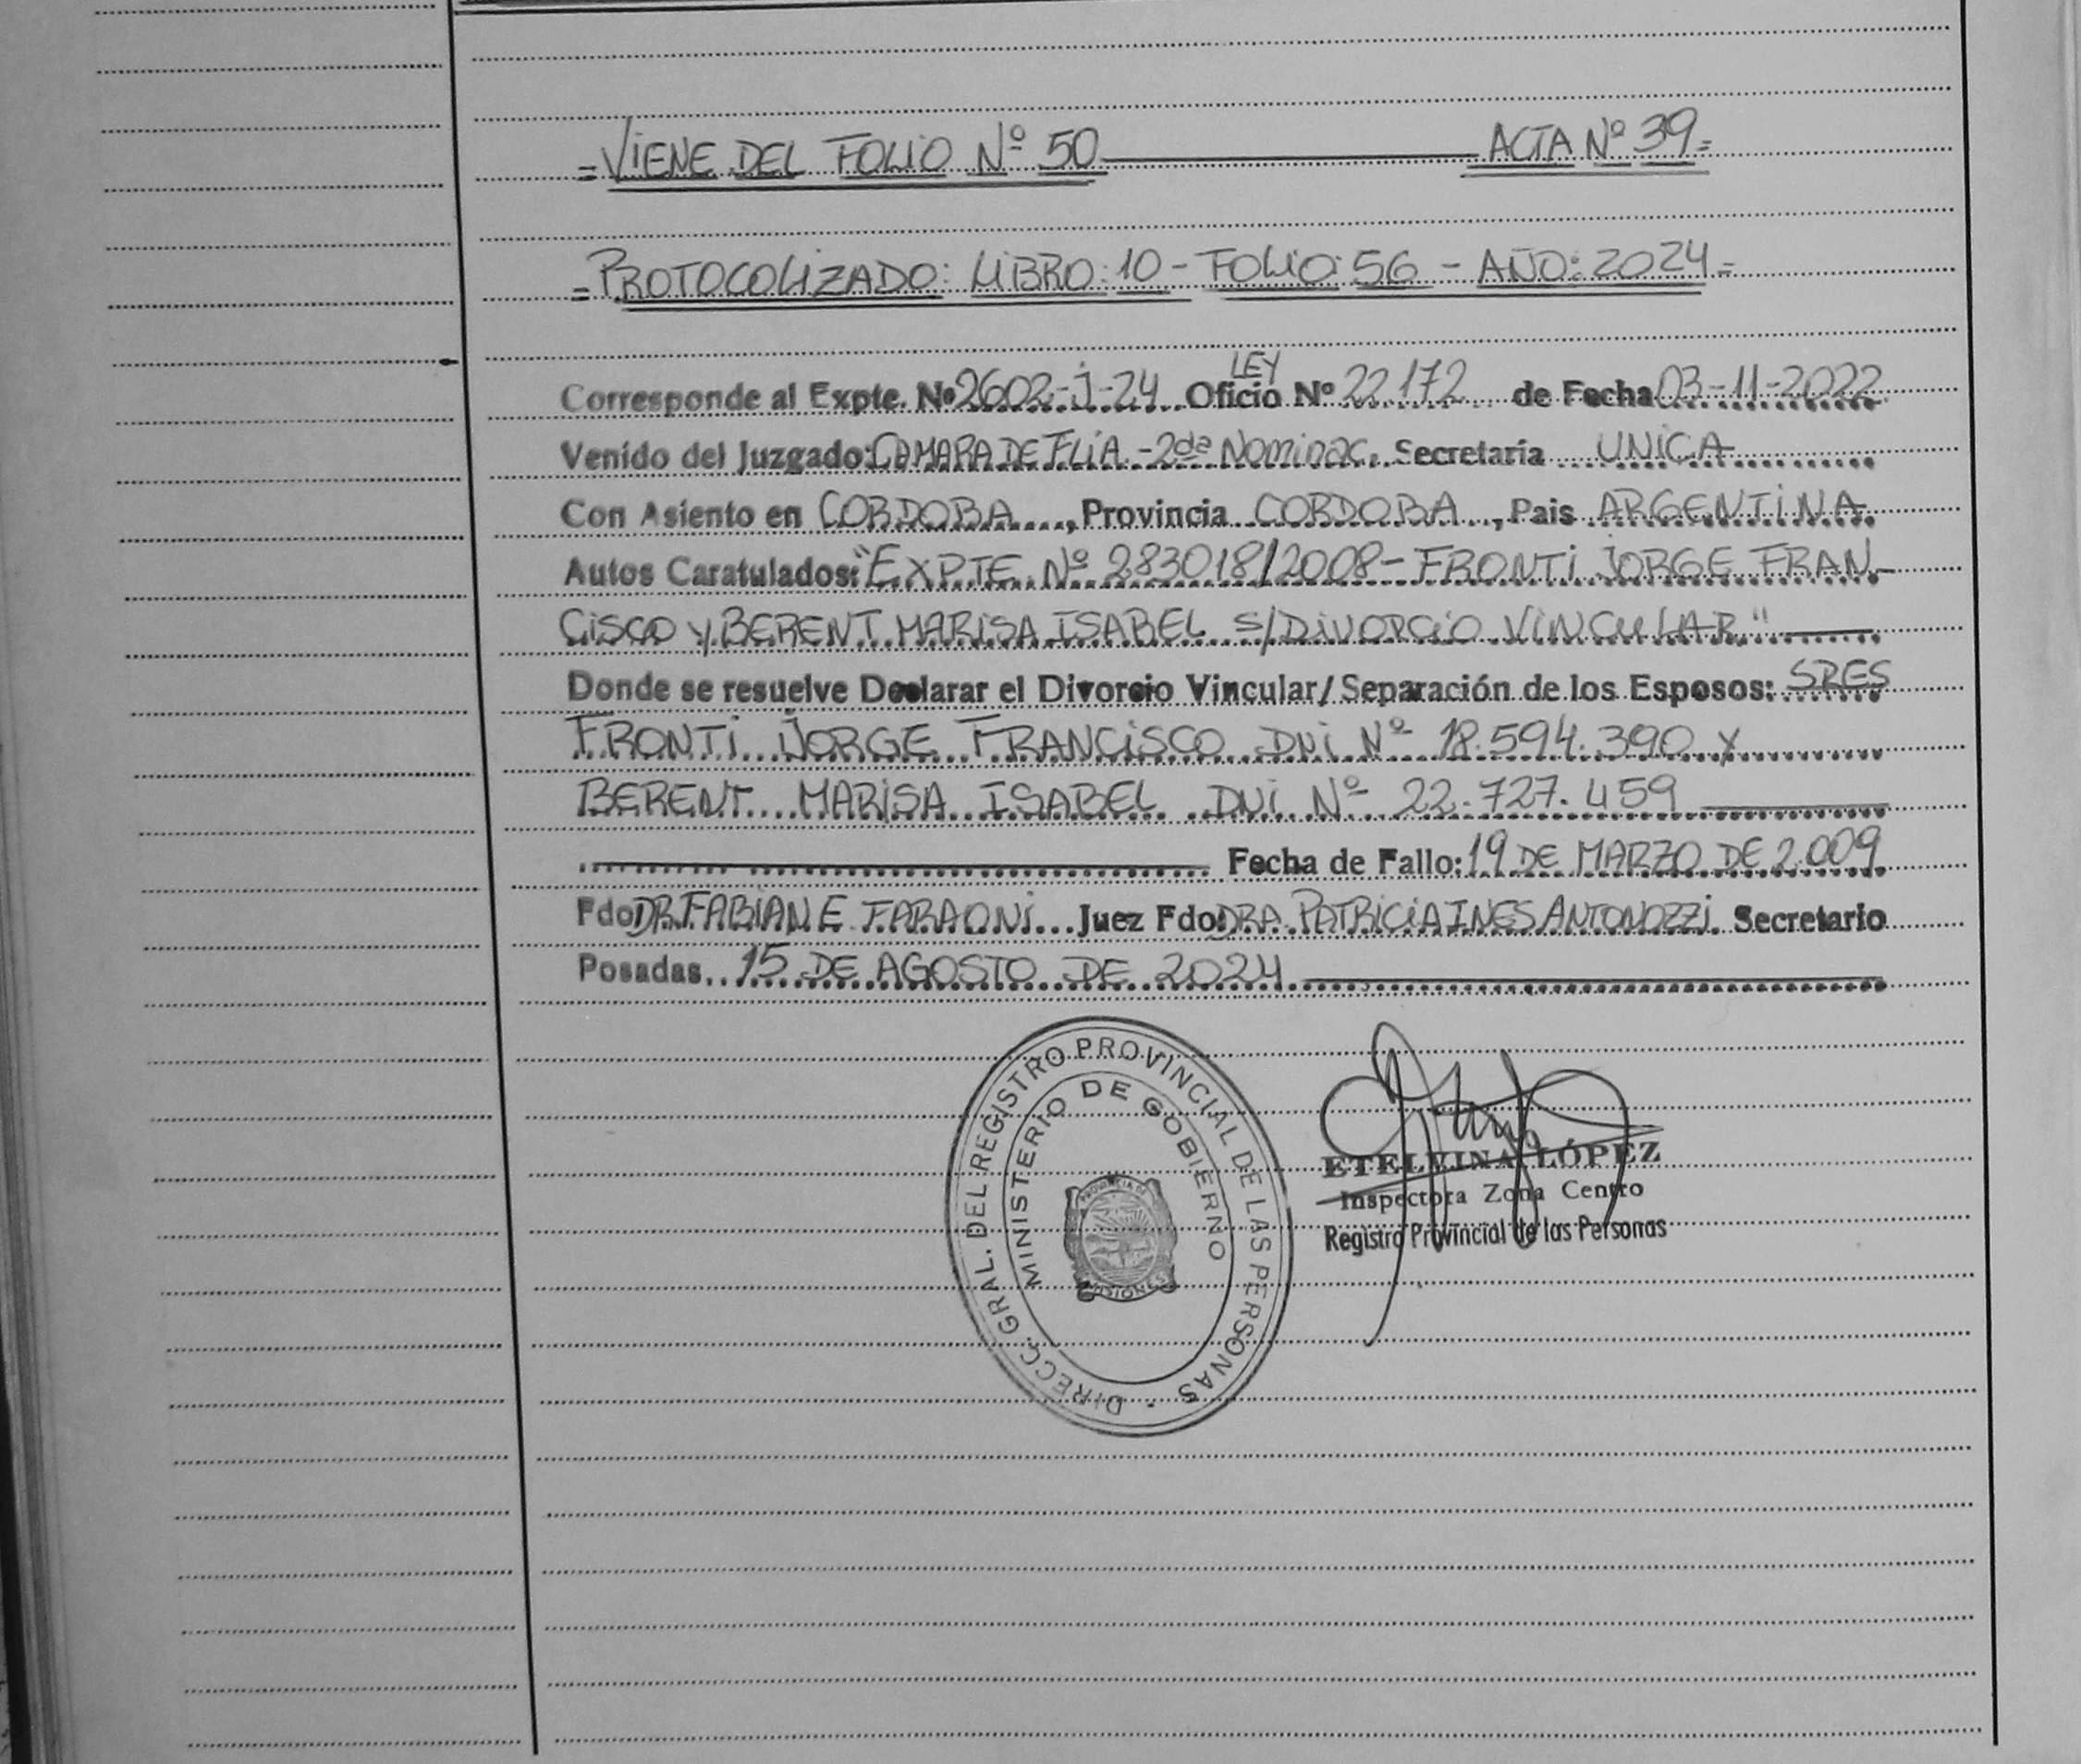 =VIENE DEL FOLIO Nº 50 ACTA Nº 39=
=PROTOCOLIZADO: LIBRO: 10 - FOLIO: 56 - AÑO: 2024=
LEY
Corresponde al Expte. Nº 2602-J-24 Oficio Nº 22.172 de Fecha 03-11-2022
Venido del Juzgado: CAMARA DE FLIA - 2da Nominac. Secretaría UNICA
Con Asiento en CORDOBA, Provincia CORDOBA, Pais ARGENTINA
Autos Caratulados: "EXPTE Nº 283018/2008 - FRONTI JORGE FRAN-
CISCO Y BERENT MARISA ISABEL S/DIVORCIO VINCULAR"
Donde se resuelve Declarar el Divorcio Vincular/Separación de los Esposos: SRES
FRONTI JORGE FRANCISCO DNI Nº 18.594.390 Y
BERENT MARISA ISABEL DNI Nº 22.727.459
Fecha de Fallo: 19 DE MARZO DE 2.009
Fdo DR. FABIAN E FARAONI Juez Fdo: DRA. PATRICIA INES ANTONOZZI Secretario
Posadas, 15 DE AGOSTO DE 2024
DIRECC. GRAL. DEL REGISTRO PROVINCIAL DE LAS PERSONAS -
MINISTERIO DE GOBIERNO
PROVINCIA DE
MISIONES
ETELVINA LÓPEZ
Inspectora Zona Centro
Registro Provincial de las Personas